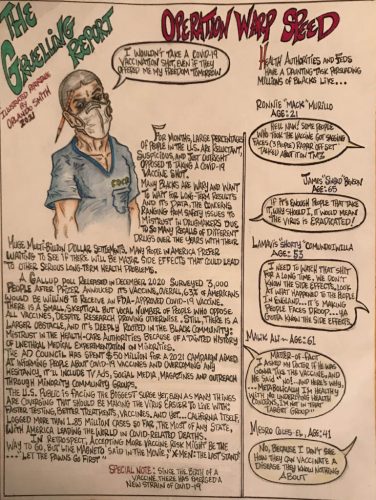 THE
GRUELLING
REPORT
ILLUSTRATED REPORTAGE
BY
ORLANDO SMITH
2021
OPERATION WARP SPEED
I WOULDN'T TAKE A COVID-19
VACCINATION SHOT, EVEN IF THEY
OFFERED ME MY FREEDOM TOMORROW
CDCR
FOR MONTHS, LARGE PERCENTAGES
OF PEOPLE IN THE U.S. ARE RELUCTANT,
SUSPICIOUS, AND JUST OUTRIGHT
OPPOSED TO TAKING A COVID-19
VACCINE SHOT.
MANY BLACKS ARE WARY AND WANT
TO WAIT FOR LONG-TERM RESULTS
AND IT'S DATA, THE CONCERNS
RANGING FROM SAFETY ISSUES TO
MISTRUST IN DRUGMAKERS DUE
TO SO MANY RECALLS OF DIFFERENT
DRUGS OVER THE YEARS WITH THEIR
HUGE MULTI-BILLION DOLLAR SETTLEMENTS, MANY PEOPLE IN AMERICA PREFER
WAITING TO SEE IF THERE WILL BE MAJOR SIDE EFFECTS THAT COULD LEAD
TO OTHER SERIOUS LONG-TERM HEALTH PROBLEMS.
A GALLUP POLL RELEASED IN DECEMBER 2020 SURVEYED 3,000
PEOPLE AFTER PFIZER ANNOUNCED IT'S VACCINE, OVERALL 63% OF AMERICANS
WOULD BE WILLING TO RECEIVE AN FDA-APPROVED COVID-19 VACCINE.
THERE IS A SMALL, SKEPTICAL BUT VOCAL NUMBER OF PEOPLE WHO OPPOSE
ALL VACCINES, DESPITE RESEARCH PROVING OTHERWISE. STILL, THERE IS A
LARGER OBSTACLE, AND IT'S DEEPLY ROOTED IN THE BLACK COMMUNITY:
MISTRUST IN THE HEALTH-CARE AUTHORITIES BECAUSE OF A TAINTED HISTORY
OF UNETHICAL MEDICAL EXPERIMENTATION ON MINORITIES.
THE AD COUNCIL HAS SPENT $50 MILLION FOR A 2021 CAMPAIGN AIMED
AT INFORMING PEOPLE ABOUT COVID-19 VACCINES AND OVERCOMING ANY
HESITANCE. IT'LL INCLUDE TV ADS, SOCIAL MEDIA, MAGAZINES AND OUTREACH
THROUGH MINORITY COMMUNITY GROUPS.
THE U.S. PUBLIC IS FACING THE BIGGEST SURGE YET, EVEN AS MANY THINGS
ARE OCCURRING THAT SHOULD BE MAKING THE VIRUS EASIER TO LIVE WITH:
FASTER TESTING, BETTER TREATMENTS, VACCINES, AND YET... CALIFORNIA ITSELF
LOGGED MORE THAN 1.85 MILLION CASES SO FAR, THE MOST OF ANY STATE,
WITH AMERICA LEADING THE WORLD IN COVID-RELATED DEATHS.
IN RETROSPECT, ACCEPTING MORE VACCINE RISK MIGHT BE THE
WAY TO GO, BUT LIKE MAGNETO SAID IN THE MOVIE, "X-MEN: THE LAST STAND"
..."LET THE PAWNS GO FIRST"
SPECIAL NOTE: SINCE THE BIRTH OF A
VACCINE, THERE HAS EMERGED A
NEW STRAIN OF COVID-19
HEALTH AUTHORITIES AND FEDS
HAVE A DAUNTING TASK PERSUADING
MILLIONS OF BLACKS LIKE...
RONNIE "MACK" MURILLO
AGE: 21
HELL NAW! SOME PEOPLE
WHO TOOK THE VACCINE GOT SAGGING
FACES (3 PEOPLE) RAPPER OFF SET
TALKED ABOUT IT ON TMZ
AGE: 65
IF IT'S ENOUGH PEOPLE THAT TAKE
IT, WHY SHOULD I, IT WOULD MEAN
THE VIRUS IS ERADICATED!
AGE: 53
I NEED TO WATCH THAT SHIT
FOR A LONG TIME. WE DON'T
KNOW THE SIDE EFFECTS, LOOK
AT WHAT HAPPENED TO THE PEOPLE
IN ENGLAND... IT'S MAKING
PEOPLE FACES DROP... YA
GOTTA KNOW THE SIDE EFFECTS.
MALIK ALI - AGE: 61
MATTER-OF-FACT
I ASKED MY DOCTOR IF HE WAS
GONNA TAKE THE VACCINE, AND
HE SAID "NO!- AND HERE'S WHY,
...MEDS BECAUSE I'M HEALTHY
WITH NO UNDERLYING HEALTH
CONCERNS, I'M NOT IN THAT
TARGET GROUP"
AGE: 41
NO, BECAUSE I DON'T SEE
HOW THEY CAN VACCINATE A
DISEASE THEY KNOW NOTHING
ABOUT